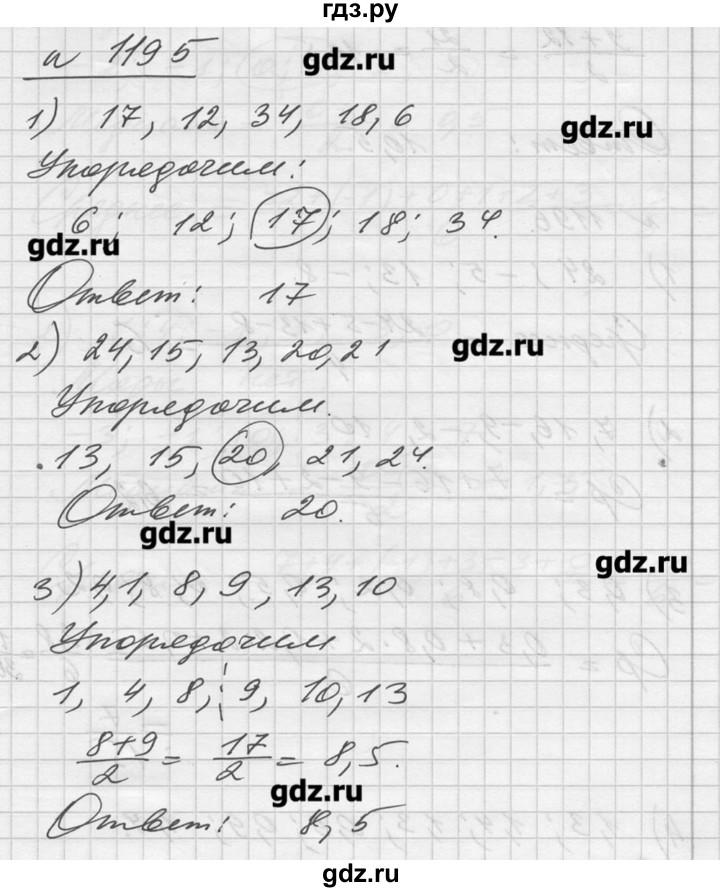 гдз.ру
№ 1195
gdz.ru
1) 17, 12, 34, 18, 6
gdz.ru
Упорядочим:
6; 12; 17; 18; 34.
gdz.ru
Ответ: 17
2) 24, 15, 13, 20, 21
gdz.ru
Упорядочим.
13, 15, 20, 21, 24.
Ответ: 20.
gdz.ru
gdz.ru
3) 4, 1, 8, 9, 13, 10
Упорядочим
1, 4, 8, 9, 10, 13
8+9/2 = 17/2 = 8,5.
gdz.ru
Ответ: 8,5
gdz.ru